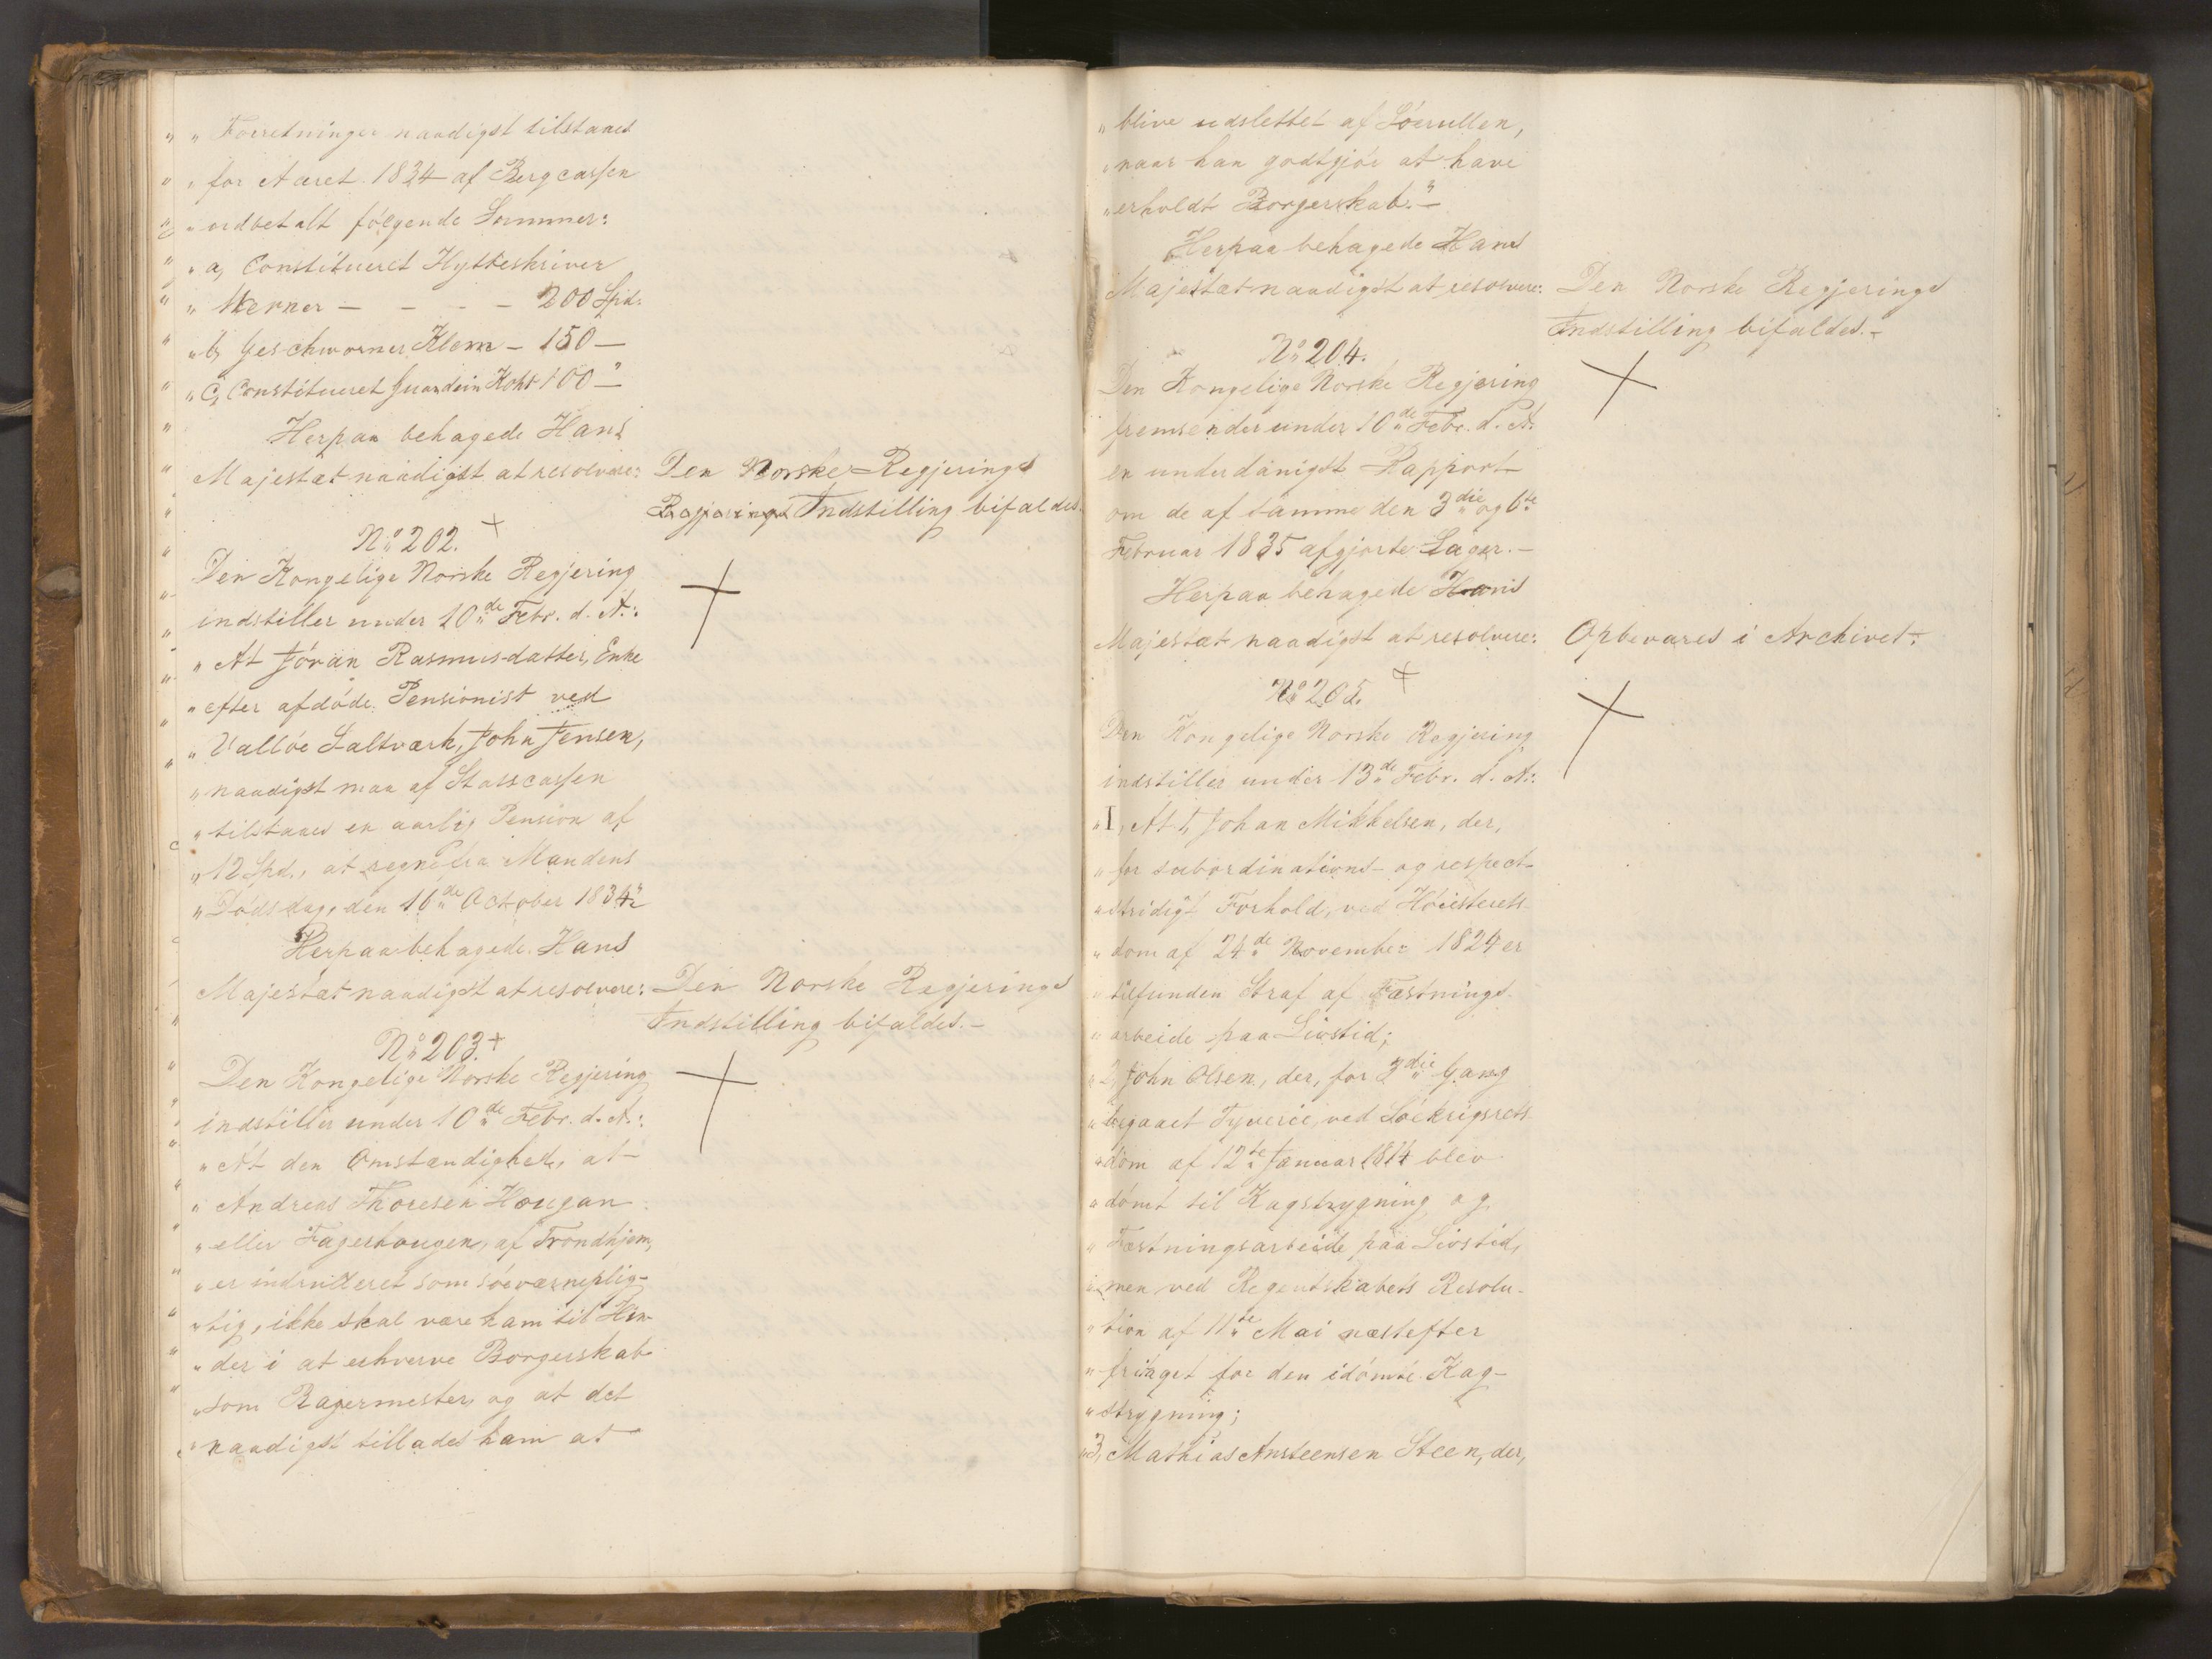 " " Forretninger naadigst tilstaaes
" " for Aaret 1834 af Bergcassen
" " udbetalt følgende Summer:
" " a, Constitueret Hytteskriver
" " Werner – – – – 200 Spd:
" " b, Geschworner Klem – 150 –
" " c, Constitueret Guardein Koht 100 – "
Herpaa behagede Hans
Majestæt naadigst at resolvere:
Den Norske Regjerings
Regjerings Indstilling bifaldes.
No 202. +
Den Kongelige Norske Regjering
indstiller under 10de Febr. d. A.:
" At Jöran Rasmusdatter, Enke
" efter afdöde Pensionist ved
" Vallöe Saltværk, John Jensen,
" naadigst maa af Statscassen
" tilstaaes en aarlig Pension af
" 12 Spd., at regne fra Mandens
" Dödsdag, den 16de October 1834."
Herpaa behagede Hans
Majestæt naadigst at resolvere:
Den Norske Regjerings
Indstilling bifaldes. –
No 203. +
Den Kongelige Norske Regjering
indstiller under 10de Febr. d. A.:
" At den Omstændighed, at
" Andreas Thoresen Hougan
" eller Fagerhougen, af Trondhjem,
" er indrulleret som söeværneplig-
" tig, ikke skal være ham til Hin-
" der i at erhverve Borgerskab
" som Bagermester, og at det
" naadigst tillades ham at
" blive udslettet af Söerullen,
" naar han godtgjör at have
" erholdt Borgerskab." –
Herpaa behagede Hans
Majestæt naadigst at resolvere:
Den Norske Regjerings
Indstilling bifaldes. –
No 204.
Den Kongelige Norske Regjering
fremsender under 10de Febr. d. A.
en underdanigst Rapport
om de af samme den 3die og 6te
Februar 1835 afgjorte Sager. –
Herpaa behagede Hans
Majestæt naadigst at resolvere:
Opbevares i Archivet.
No 205. +
Den Kongelige Norske Regjering
indstiller under 13de Febr. d. A.:
" I, At 1, Johan Mikkelsen, der,
" for subordinations- og respect-
" stridigt Forhold, ved Höiesterets
" dom af 24de November 1824 er
" tilfunden Straf af Fæstnings-
" arbeide paa Livstid;
" 2, John Olsen, der, for 3die Gang
" begaaet Tyverie, ved Söekrigsrets
" dom af 12te Januar 1814 blev
" dömt til Kagstrygning og
" Fæstningsarbeide paa Livstid,
" men ved Regentskabets Resolu-
" tion af 11te Mai næstefter
" fritaget for den idömte Kag-
" strygning;
" 3, Mathias Ansteensen Steen, der,